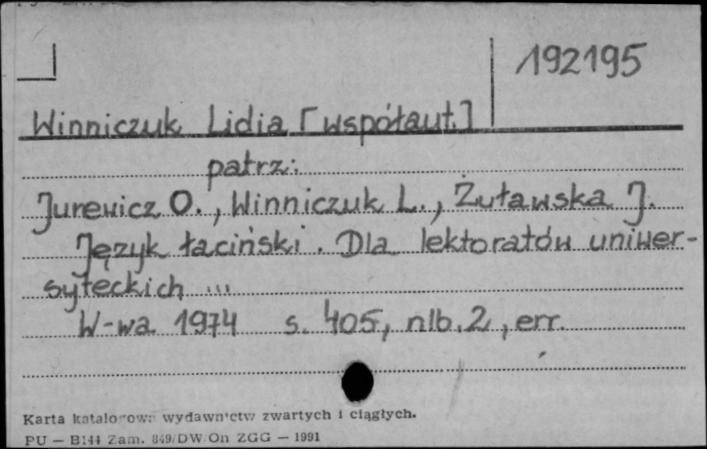 192195
Winniczuk Lidia [współaut.]
patrz:
Jurewicz O., Winniczuk L., Żuławska J.
Język łaciński. Dla lektoratów uniwer-
syteckich ...
W-wa 1974 s. 405, nlb. 2, err.
Karta katalogowa wydawnictw zwartych i ciągłych.
PU — B144 Zam. 849/DW/On ZGG — 1991